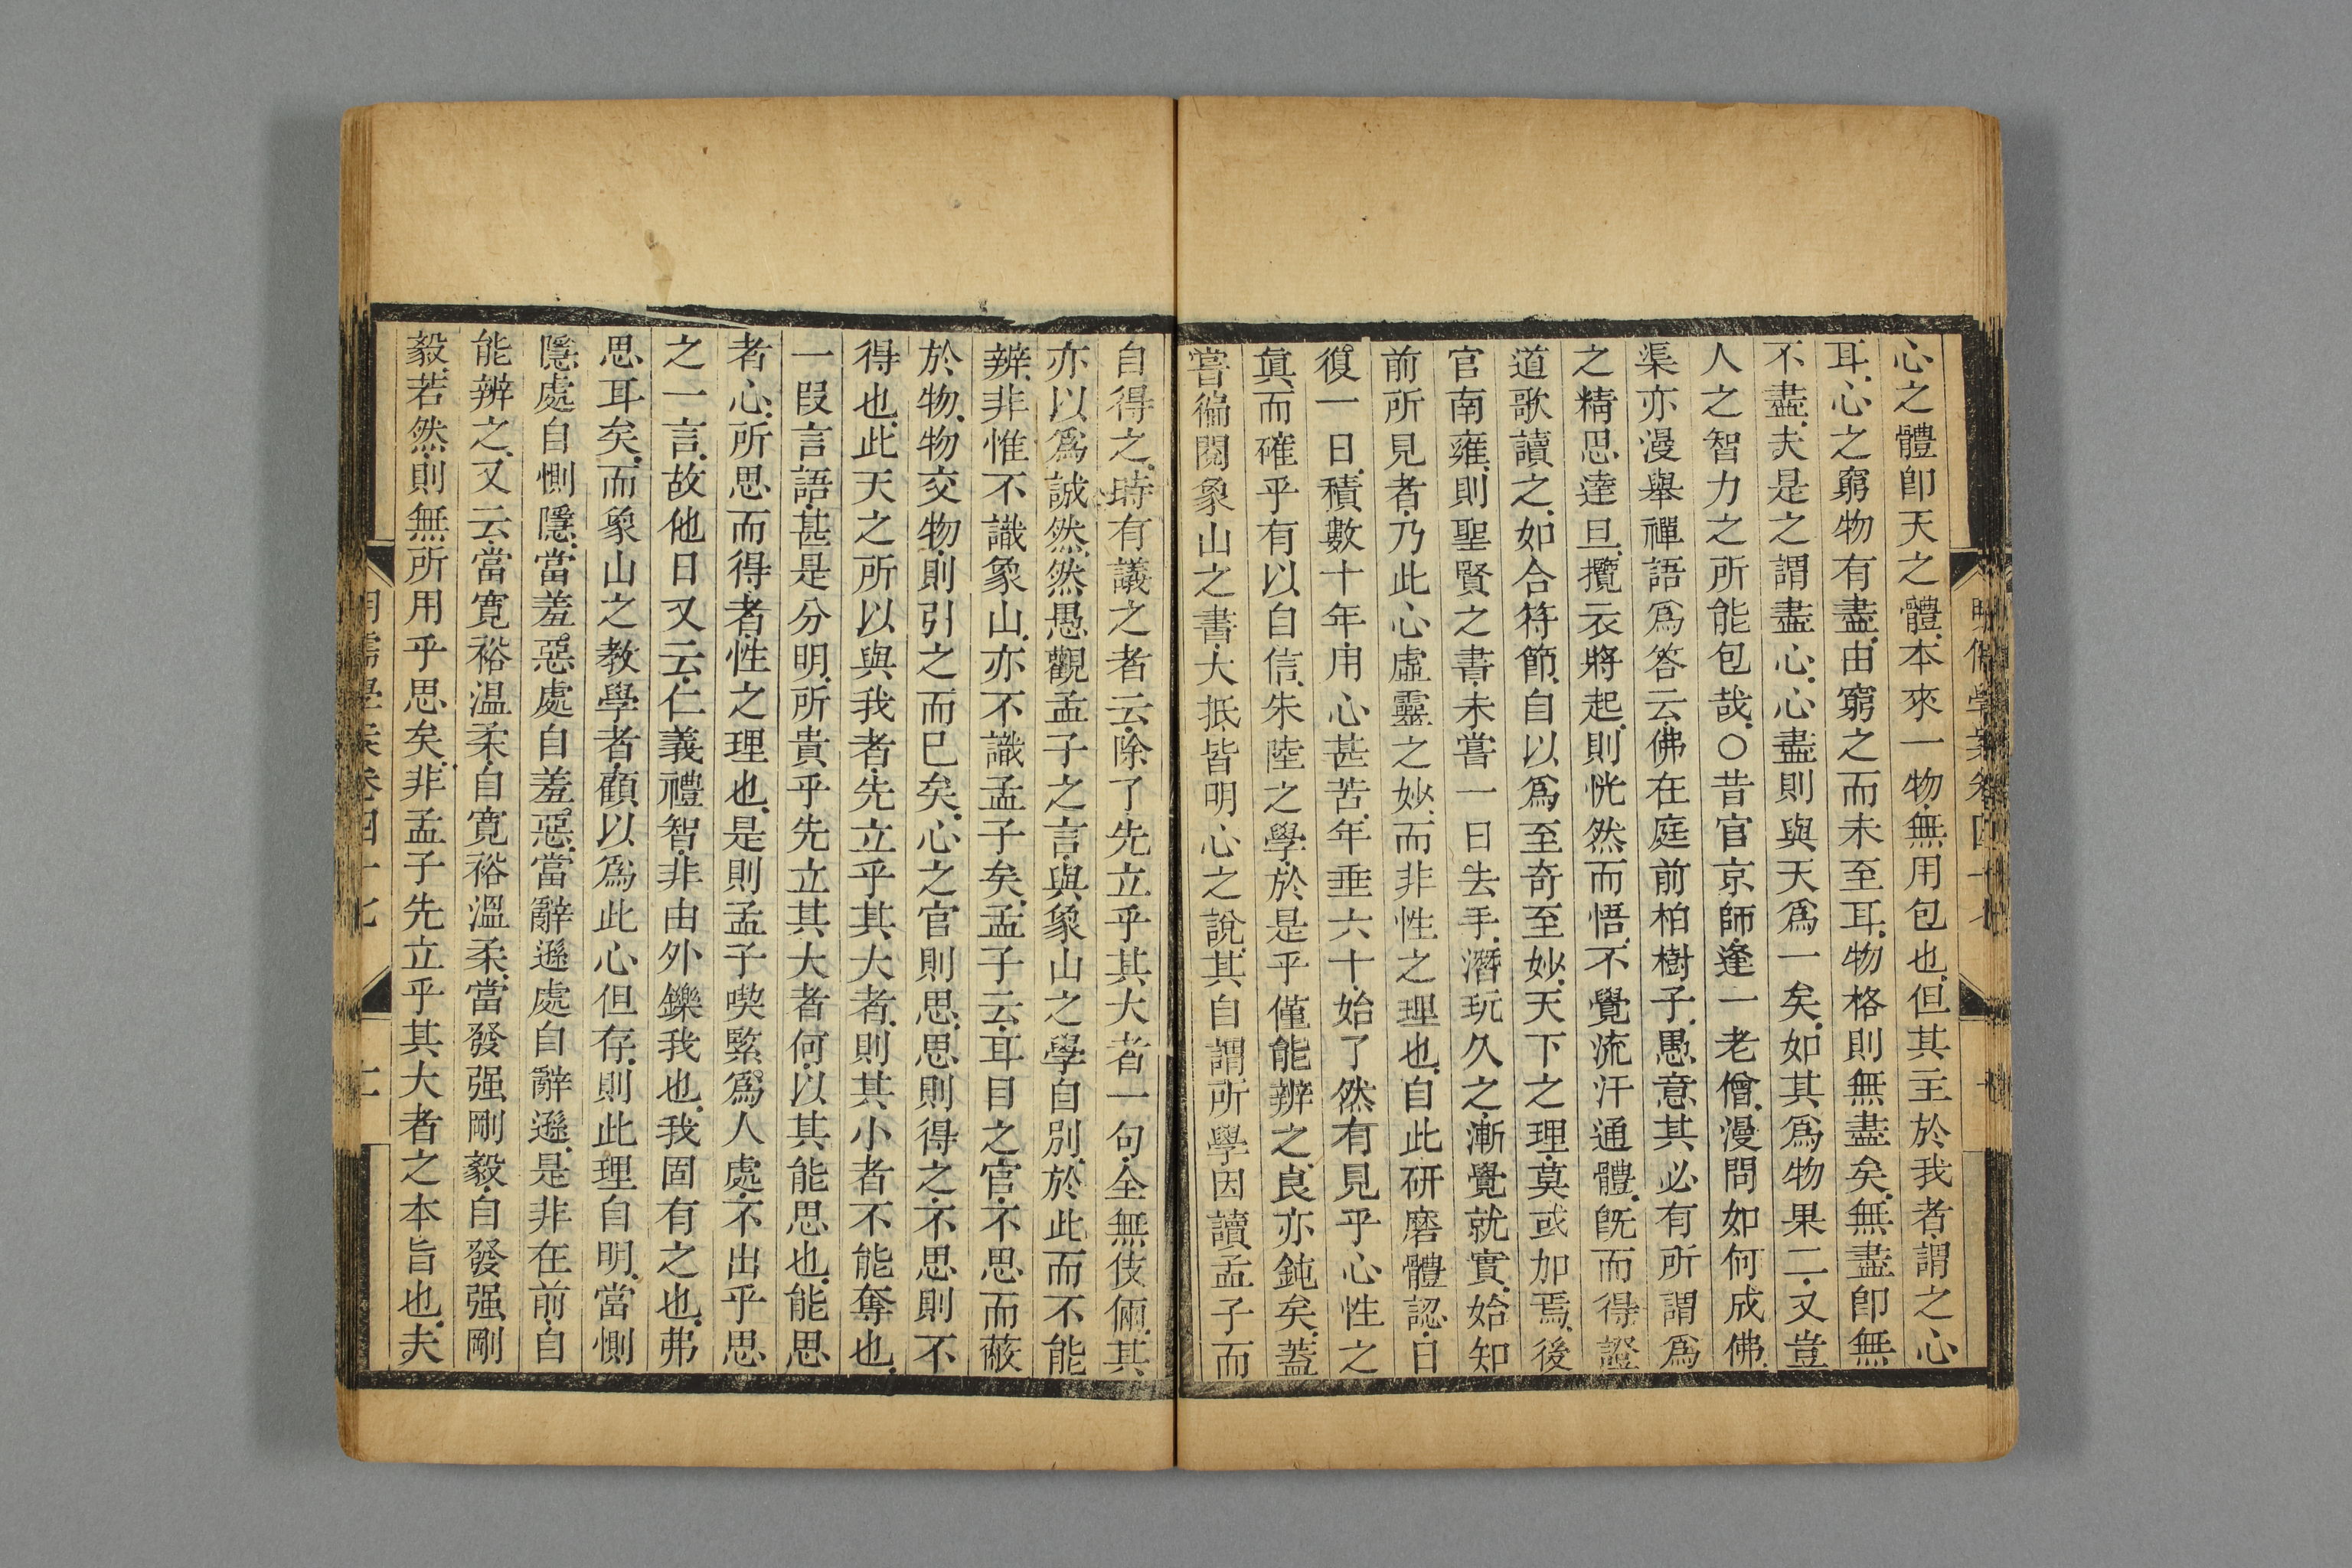 心之體卽天之體本來一物無用包也但其主於我者謂之心
耳心之窮物有盡由窮之而未至耳物格則無盡矣無盡卽無
不盡夫是之謂盡心心盡則與天爲一矣如其爲物果二又豈
人之智力之所能包哉○昔官京師逢一老僧漫問如何成佛
渠亦漫舉禪語爲答云佛在庭前柏樹子愚意其必有所謂爲
之精思達旦攬衣將起則恍然而悟不覺流汗通體旣而得證
道歌讀之如合符節自以爲至奇至妙天下之理莫或加焉後
官南雍則聖賢之書未嘗一日去手潛玩久之漸覺就實始知
前所見者乃此心虛靈之妙而非性之理也自此研磨體認日
復一日積數十年用心甚苦年垂六十始了然有見乎心性之
眞而確乎有以自信朱陸之學於是乎僅能辨之良亦鈍矣蓋
嘗徧閱象山之書大抵皆明心之說其自謂所學因讀孟子而
自得之時有議之者云除了先立乎其大者一句全無伎倆其
亦以爲誠然然愚觀孟子之言與象山之學自別於此而不能
辨非惟不識象山亦不識孟子矣孟子云耳目之官不思而蔽
於物物交物則引之而已矣心之官則思思則得之不思則不
得也此天之所以與我者先立乎其大者則其小者不能奪也
一段言語甚是分明所貴乎先立其大者何以其能思也能思
者心所思而得者性之理也是則孟子喫緊爲人處不出乎思
之一言故他日又云仁義禮智非由外鑠我也我固有之也弗
思耳矣而象山之教學者顧以爲此心但存則此理自明當惻
隱處自惻隱當羞惡處自羞惡當辭遜處自辭遜是非在前自
能辨之又云當寬裕温柔自寬裕溫柔當發强剛毅自發强剛
毅若然則無所用乎思矣非孟子先立乎其大者之本旨也夫
明儒學案卷四十七